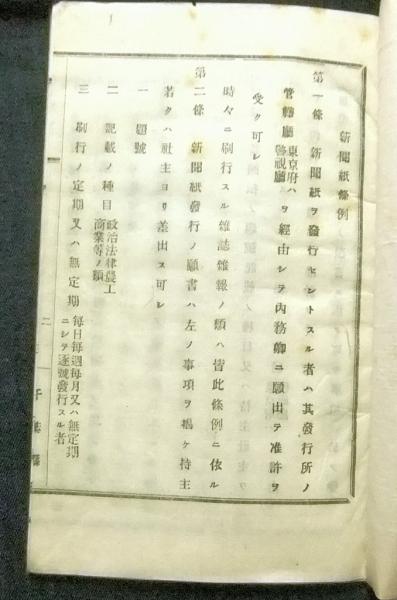 新聞紙條例
第一條　新聞紙ヲ發行セントスル者ハ其發行所ノ
管轄廳東京府ハ警視廳ヲ經由シテ內務卿ニ願出テ准許ヲ
受ク可シ
時々ニ刷行スル雜誌雜報ノ類ハ皆此條例ニ依ル
第二條　新聞紙發行ノ願書ハ左ノ事項ヲ揭ケ持主
若クハ社主ヨリ差出ス可シ
一　題號
二　記載ノ種目政治法律農工商業等ノ類
三　刷行ノ定期又ハ無定期每日每週每月又ハ無定期ニシテ逐號發行スル者
二
千葉縣